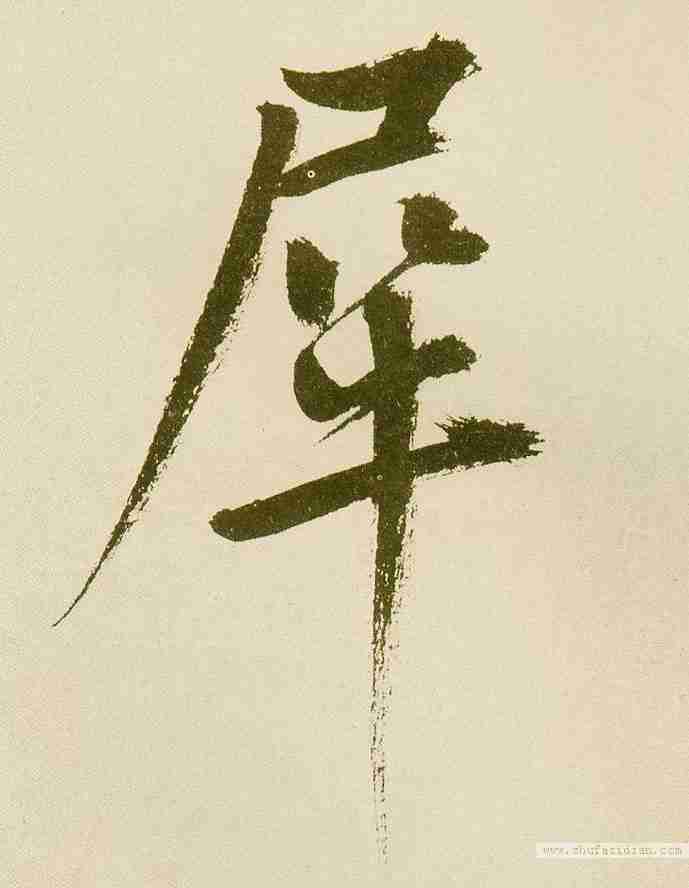 犀
www.shufazidian.com